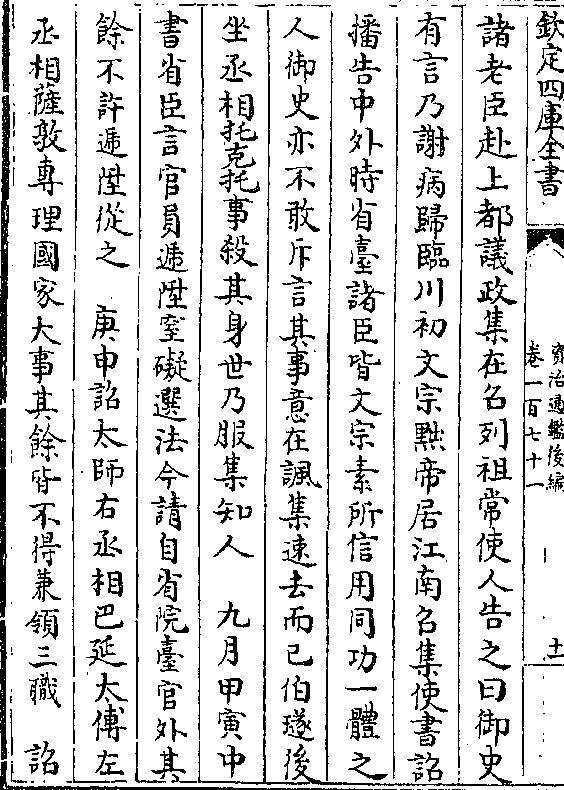 欽定四庫全書
資治通鑑後編
卷一百七十一
十一
諸老臣赴上都議政集在召列祖常使人告之曰御史
有言乃謝病歸臨川初文宗黜帝居江南召集使書詔
播告中外時省臺諸臣皆文宗素所信用同功一體之
人御史亦不敢斥言其事意在諷集速去而已伯璲後
坐丞相托克托事殺其身世乃服集知人　九月甲寅中
書省臣言官員遞陞窒礙選法今請自省院臺官外其
餘不許遞陞從之　庚申詔太師右丞相巴延太傅左
丞相薩敦專理國家大事其餘皆不得兼領三職　詔